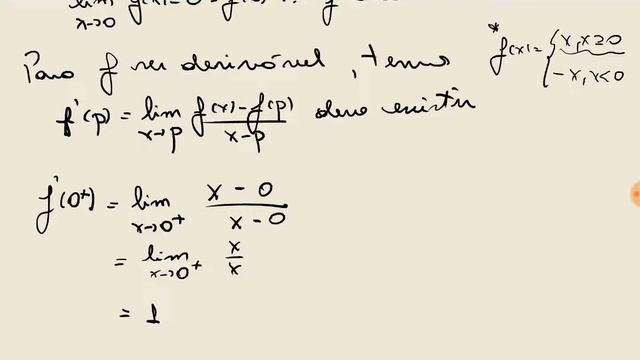 lim x→0
Para f ser derivável, temos
* f(x) = { x, x ≥ 0
-x, x < 0
f'(p) = lim x→p f(x) - f(p) / x - p deve existir
f'(0⁺) = lim x→0⁺ x - 0 / x - 0
= lim x→0⁺ x/x
= 1